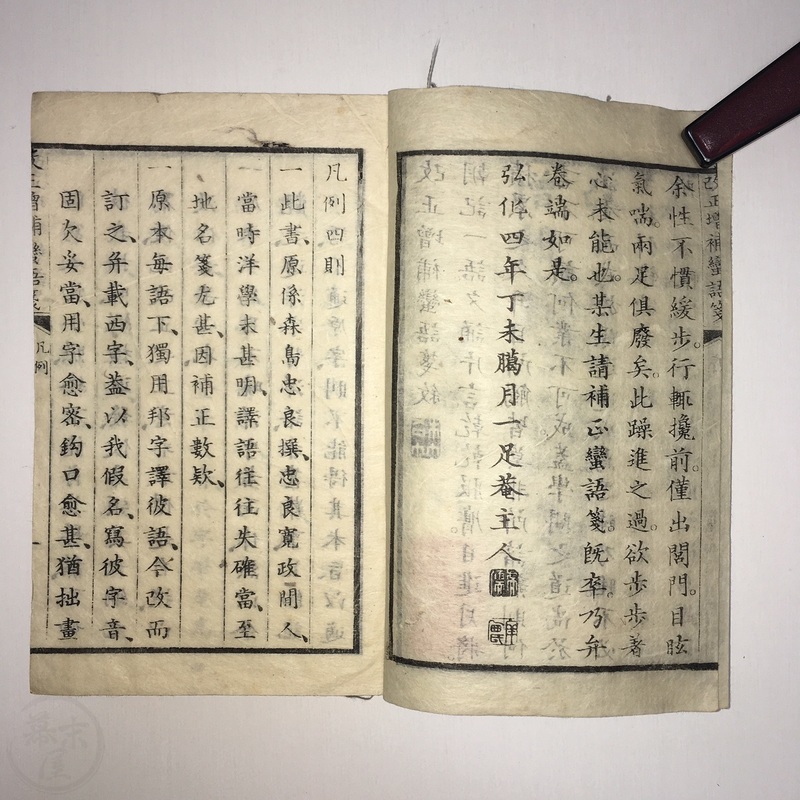 改正增補蠻語箋
余性不慣緩步。行輙攙前。僅出閭門。目眩
氣喘。兩足俱廢矣。此躁進之過。欲步步著
心未能也。某生請補正蠻語箋。旣卒乃弁
卷端如是。
弘化四年丁未臘月一足菴主人
凡例四則
一此書、原係森島忠良撰、忠良寬政間人、
一當時洋學未甚明、譯語往往失確當、至
地名箋尤甚、因補正數欵、
一原本每語下、獨用邦字譯彼語、今改而
訂之、弁載西字、葢以我假名、寫彼字音、
固欠妥當、用字愈密、鈎口愈甚、猶拙畫
改正增補蠻語箋
凡例
一
幕末屋